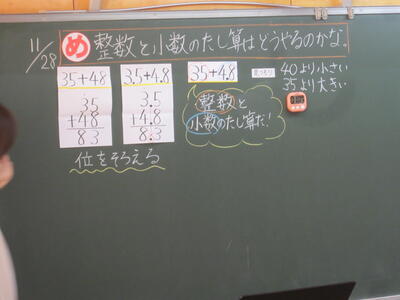 11/28
め 整数と小数のたし算はどうやるのかな。
35+48
35
+48
83
3.5+4.8
3.5
+4.8
8.3
位をそろえる
35+4.8
整数と
小数のたし算だ!
見つもり
40より小さい
35より大きい